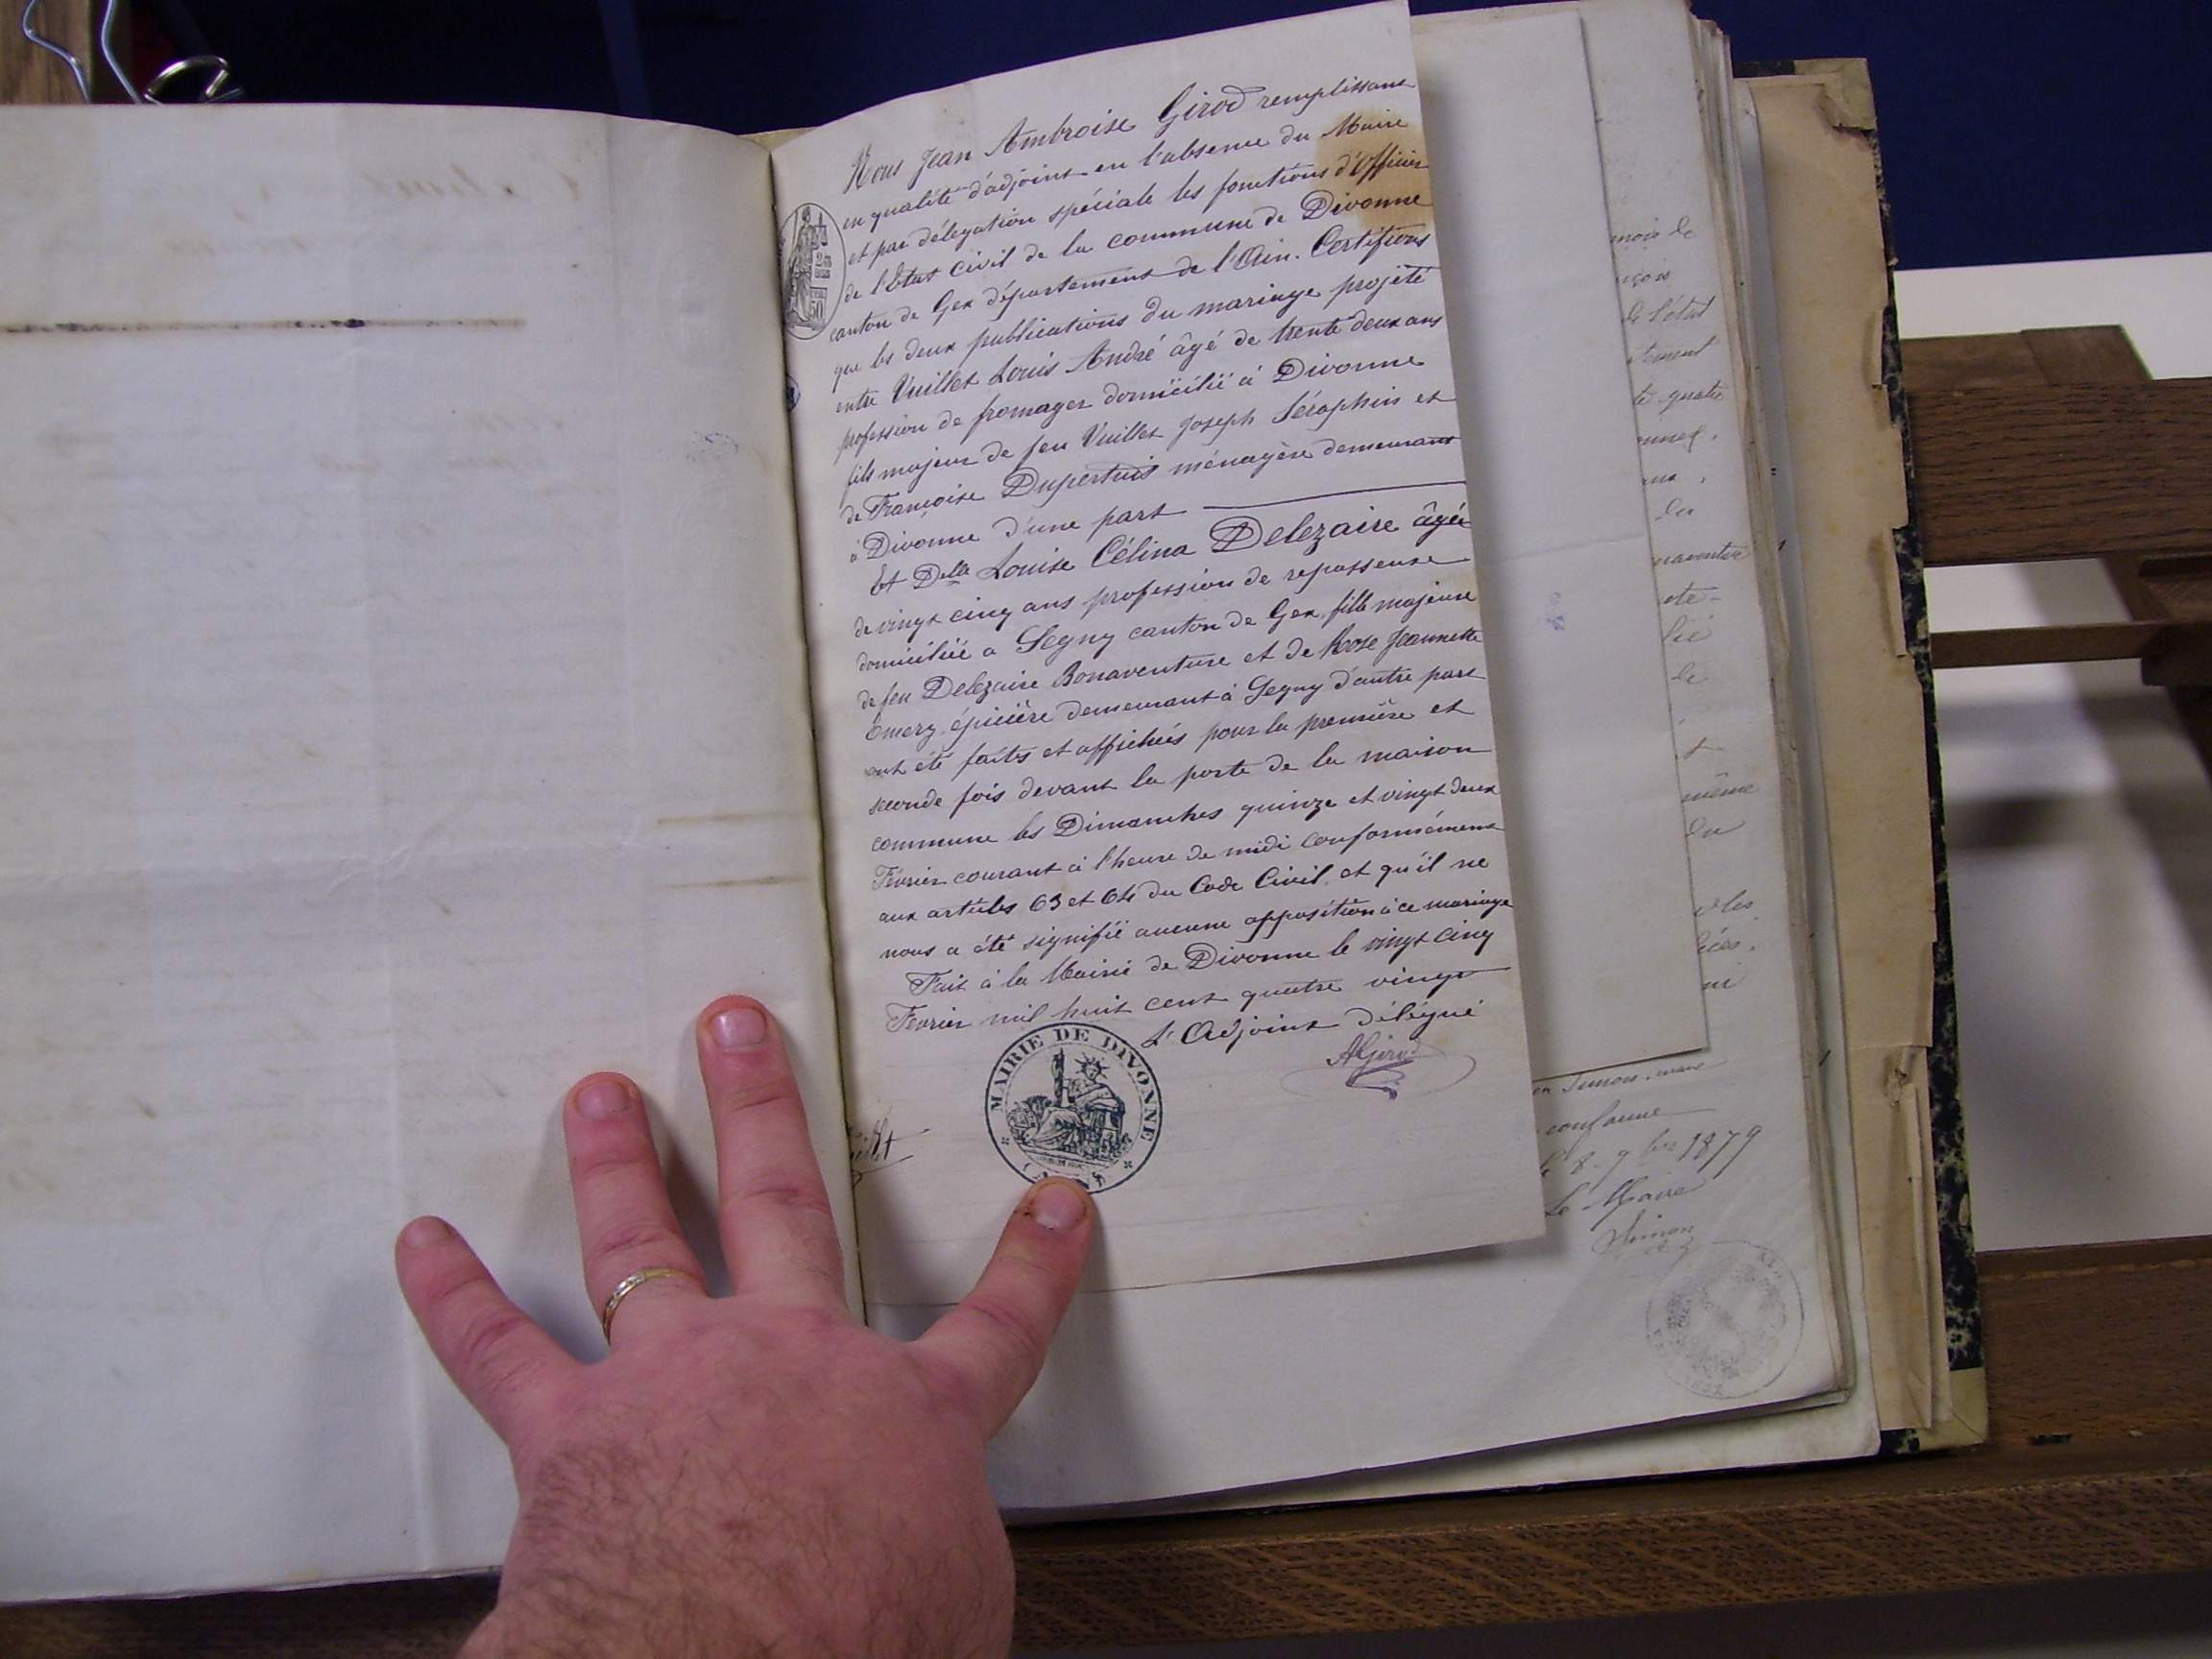 Nous Jean Ambroise Girod remplissant
en qualité d'adjoint en l'absence du Maire
et par délégation spéciale les fonctions d'Officier
de l'Etat civil de la commune de Divonne
canton de Gex département de l'Ain. Certifions
que les deux publications du mariage projeté
entre Vuillet Louis André âgé de trente deux ans
profession de fromager domicilié à Divonne
fils majeur de feu Vuillet Joseph Séraphin et
de Françoise Dupertuis ménagère demeurant
à Divonne d'une part
Et Delle Louise Célina Delezaire âgée
de vingt cinq ans profession de repasseuse
domiciliée a Segny canton de Gex, fille majeure
de feu Delezaire Bonaventure et de Rose Jeannette
Emery, épicière demeurant à Segny d'autre part
ont été faites et affichées pour la première et
seconde fois devant la porte de la maison
commune les Dimanches quinze et vingt deux
Février courant à l'heure de midi conformément
aux articles 63 et 64 du Code Civil, et qu'il ne
nous a été signifié aucune opposition à ce mariage
Fait à la Mairie de Divonne le vingt cinq
Février mil huit cent quatre vingt
L'Adjoint Délégué
AGirod
MAIRIE DE DIVONNE
50
mois de
de l'état
quatre
du
de
même
du
conforme
le 8 9bre 1879
Le Maire
Simon